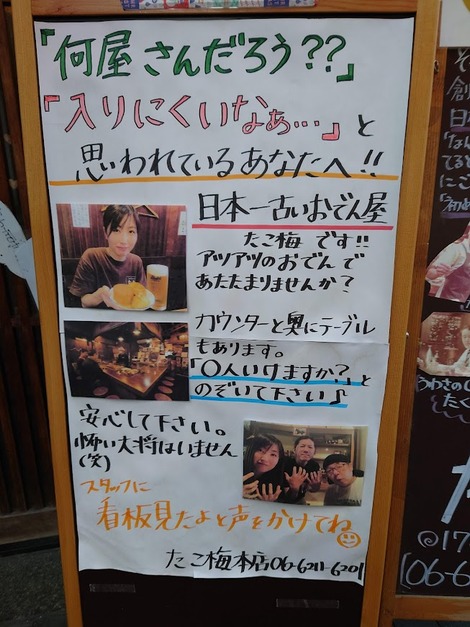 「何屋さんだろう??」
「入りにくいなぁ…」と
思われているあなたへ!!
日本一古いおでん屋
たこ梅 です!!
アツアツのおでんで
あたたまりませんか?
カウンターと奥にテーブル
もあります。
「〇人いけますか?」と
のぞいて下さい♪
安心して下さい。
怖い大将はいません
(笑)
スタッフに
看板見たよと声をかけてね
たこ梅本店06-6211-6201